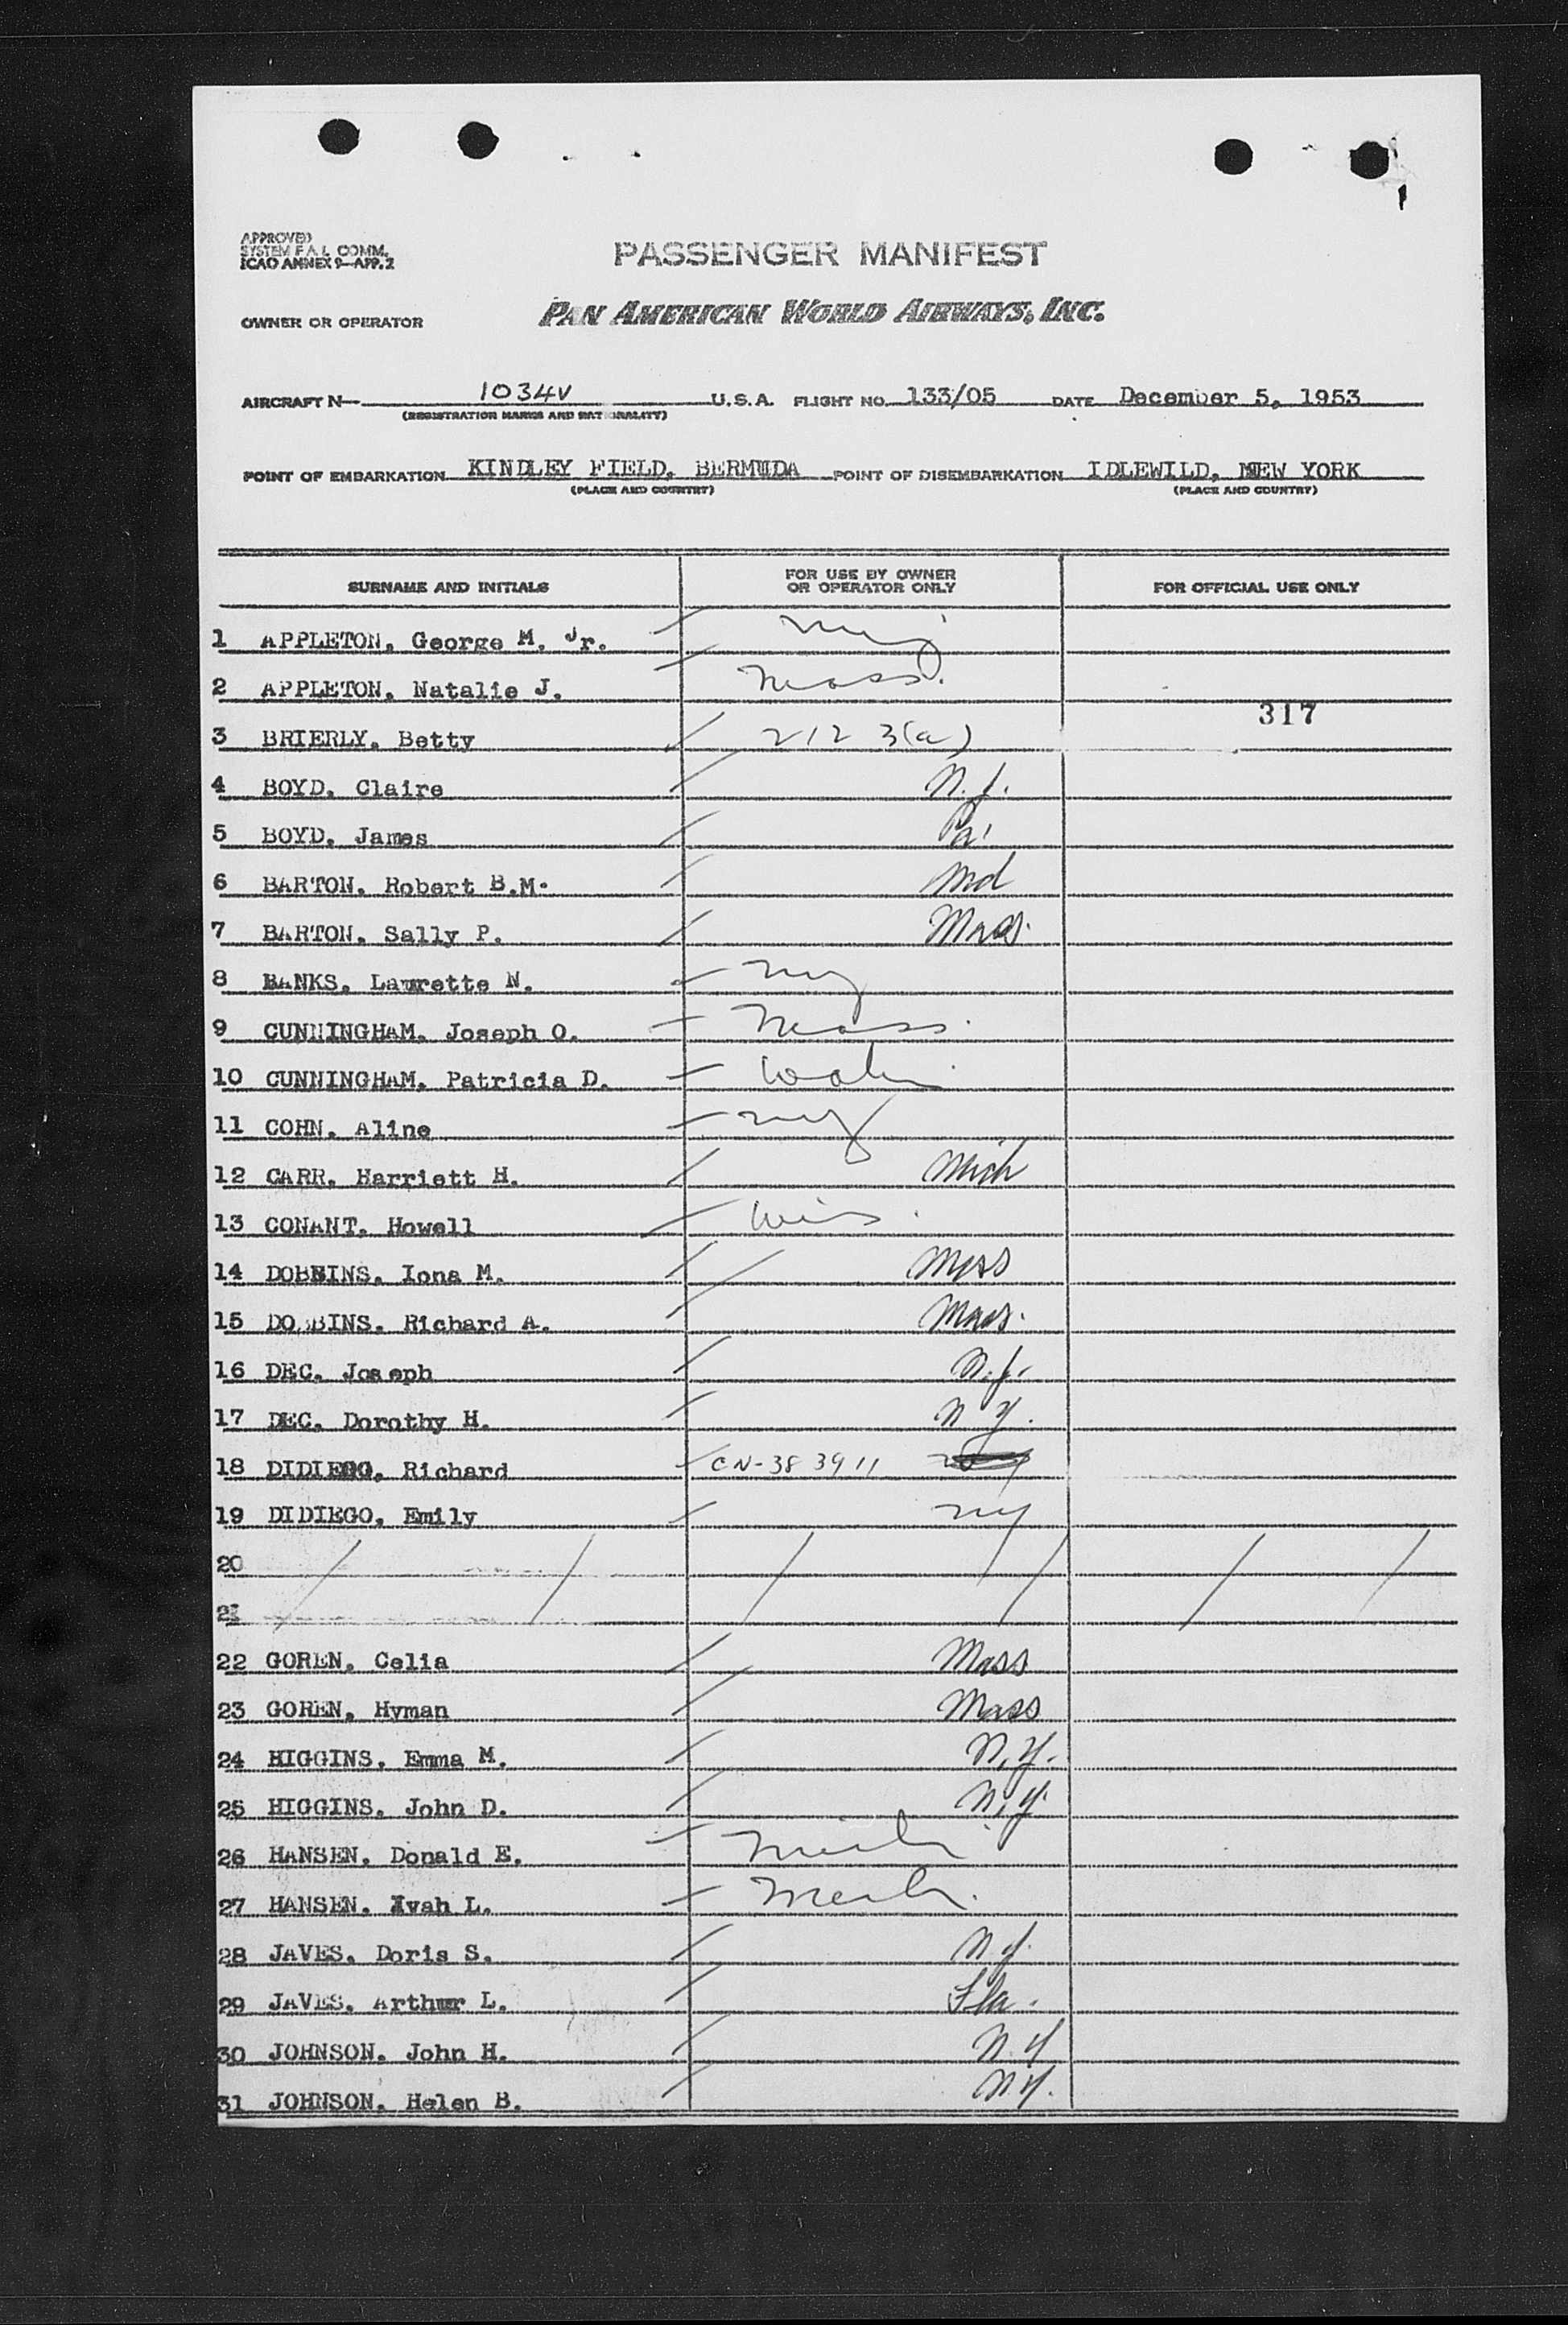 APPROVED
SYSTEM F.A.L. COMM.
ICAO ANNEX 9—APP. 2
PASSENGER MANIFEST
OWNER OR OPERATOR PAN AMERICAN WORLD AIRWAYS, INC.
AIRCRAFT N— 1034V U.S.A. FLIGHT NO. 133/05 DATE December 5, 1953
(REGISTRATION MARKS AND NATIONALITY)
POINT OF EMBARKATION KINDLEY FIELD, BERMUDA POINT OF DISEMBARKATION IDLEWILD, NEW YORK
(PLACE AND COUNTRY) (PLACE AND COUNTRY)
SURNAME AND INITIALS FOR USE BY OWNER OR OPERATOR ONLY FOR OFFICIAL USE ONLY
1 APPLETON, George M. Jr. ny
2 APPLETON, Natalie J. Mass.
317
3 BRIERLY, Betty 212 3(a)
4 BOYD, Claire N.J.
5 BOYD, James Pa.
6 BARTON, Robert B.M. Md
7 BARTON, Sally P. Mass.
8 BANKS, Laurette N. ny
9 CUNNINGHAM, Joseph O. Mass.
10 CUNNINGHAM, Patricia D.
11 COHN, Aline ny
12 CARR, Harriett H. Mich
13 CONANT, Howell Wis.
14 DOBBINS, Iona M.
15 DOBBINS, Richard A. Mass.
16 DEC, Joseph N.J.
17 DEC, Dorothy H. N Y.
18 DIDIEGO, Richard CN-38 3911
19 DIDIEGO, Emily ny
20
21
22 GOREN, Celia Mass
23 GOREN, Hyman Mass
24 HIGGINS, Emma M. N.Y.
25 HIGGINS, John D. N.Y.
26 HANSEN, Donald E. Mich
27 HANSEN, Avah L. Mich.
28 JAVES, Doris S. N Y.
29 JAVES, Arthur L. Fla.
30 JOHNSON, John H. N.Y
31 JOHNSON, Helen B. N Y.